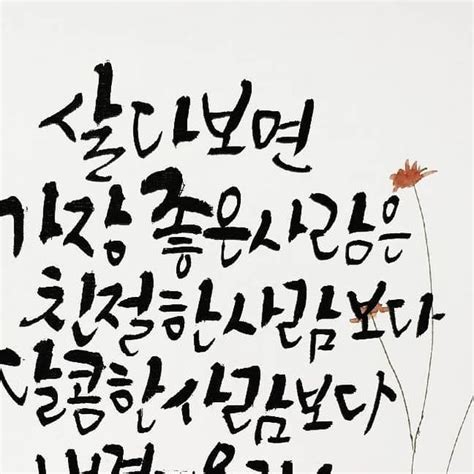 살다보면
가장 좋은사람은
친절한사람보다
달콤한사람보다